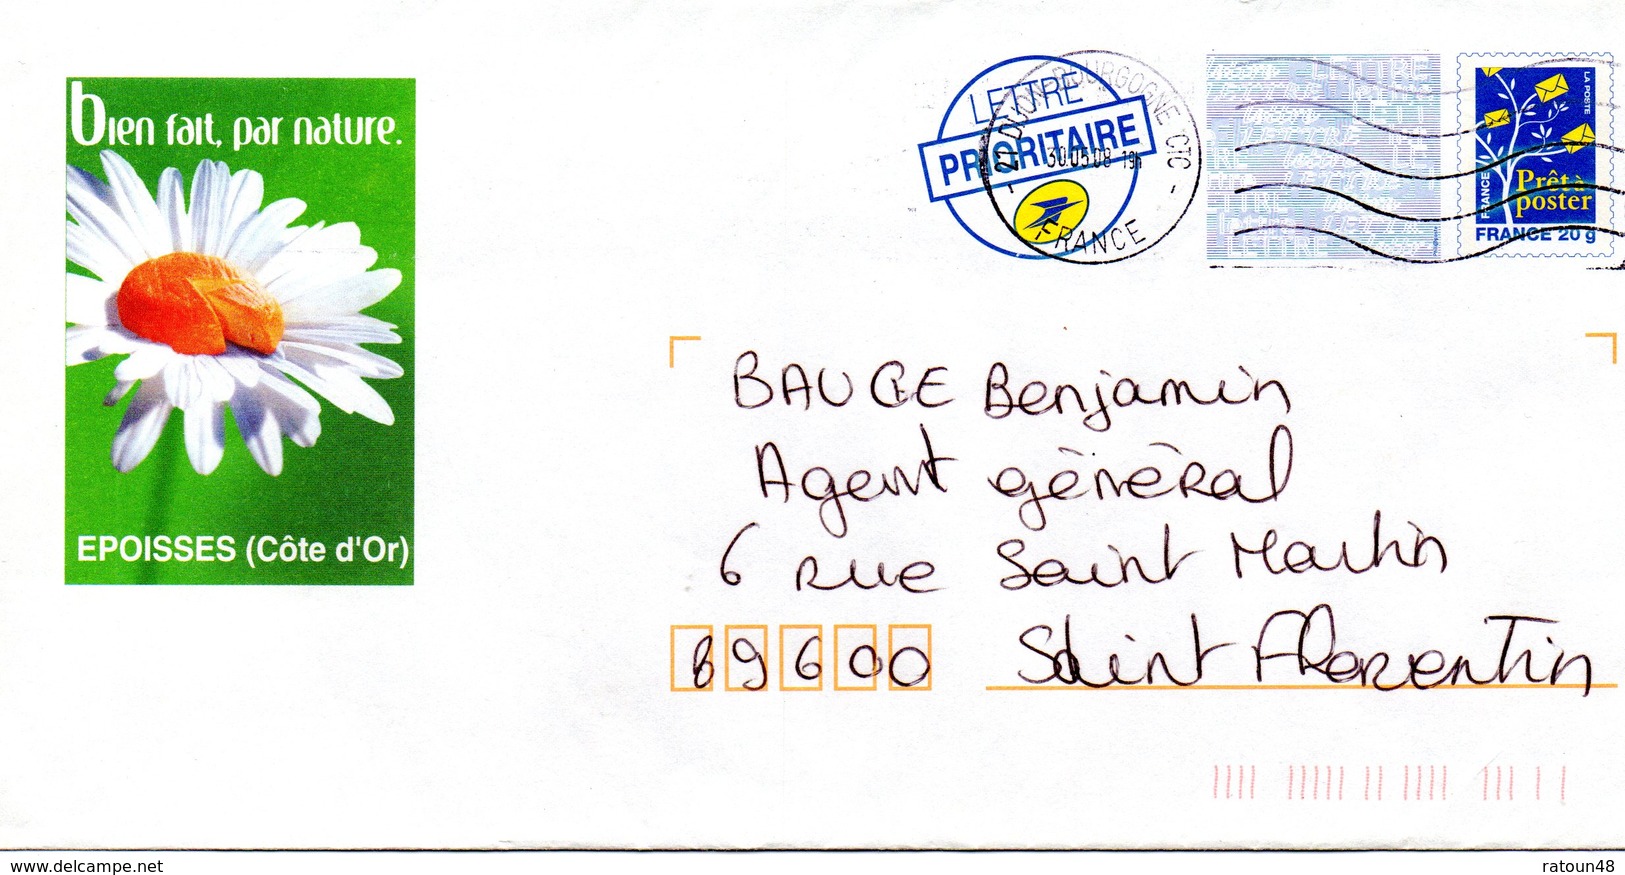 bien fait, par nature.
EPOISSES (Côte d'Or)
LETTRE
PRIORITAIRE
21 DIJON BOURGOGNE CTC
30.05.08 19h
FRANCE
LA POSTE
FRANCE
Prêt à
poster
FRANCE 20 g
BAUGE Benjamin
Agent général
6 rue Saint Martin
89600 Saint Florentin
www.delcampe.net
ratoun48